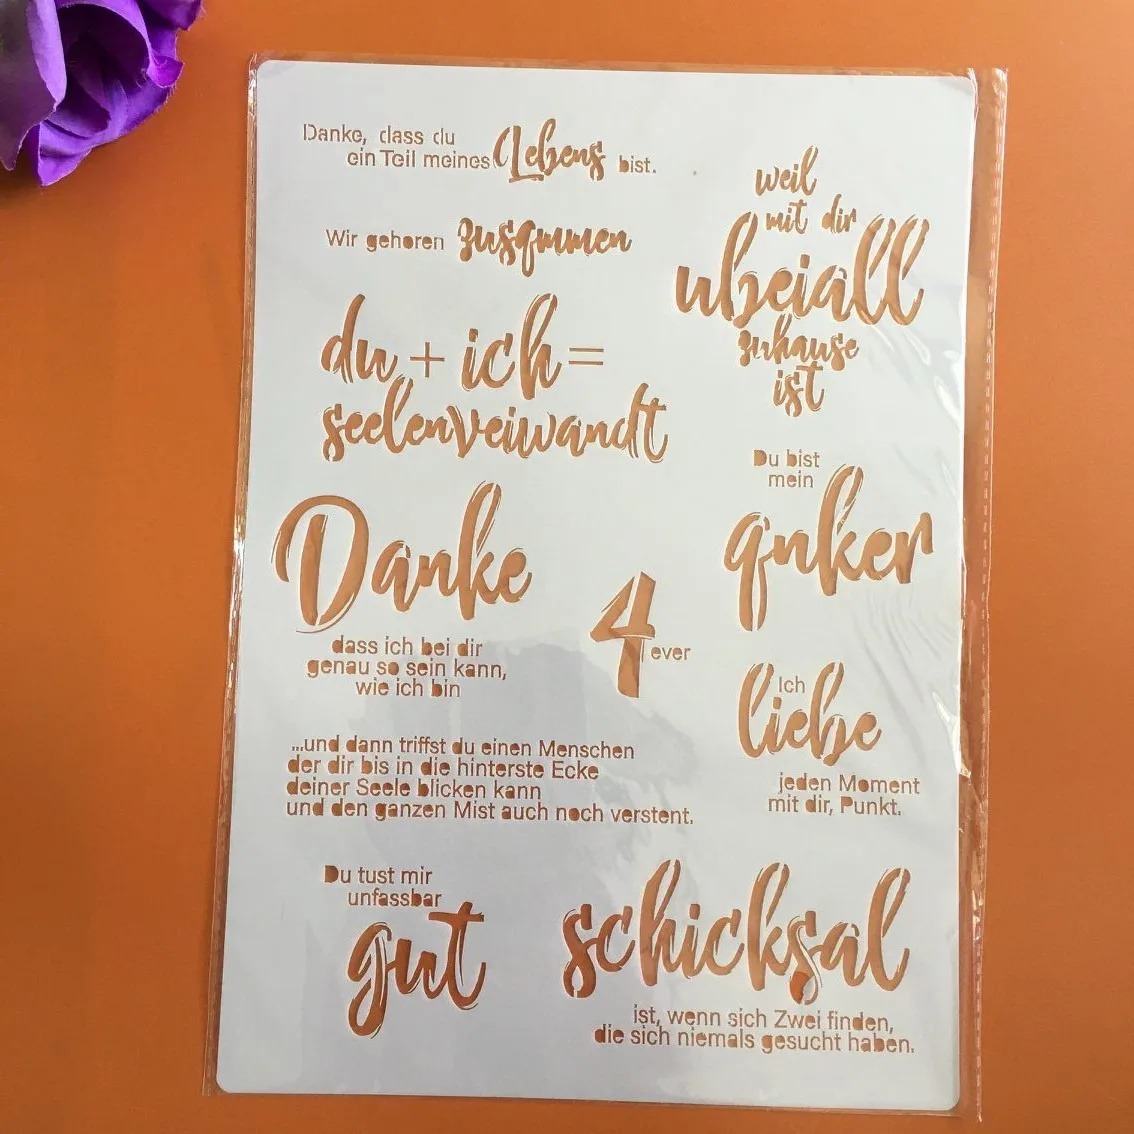 Danke, dass du
ein Teil meines Lebens bist.
Wir gehoren zusammen
du + ich =
seelenveiwandt
weil
mit dir
ubeiall
zuhause
ist
Du bist
mein
anker
Danke
dass ich bei dir
genau so sein kann,
wie ich bin
4ever
Ich
liebe
jeden Moment
mit dir, Punkt.
...und dann triffst du einen Menschen
der dir bis in die hinterste Ecke
deiner Seele blicken kann
und den ganzen Mist auch noch verstent.
Du tust mir
unfassbar
gut
schicksal
ist, wenn sich Zwei finden,
die sich niemals gesucht haben.